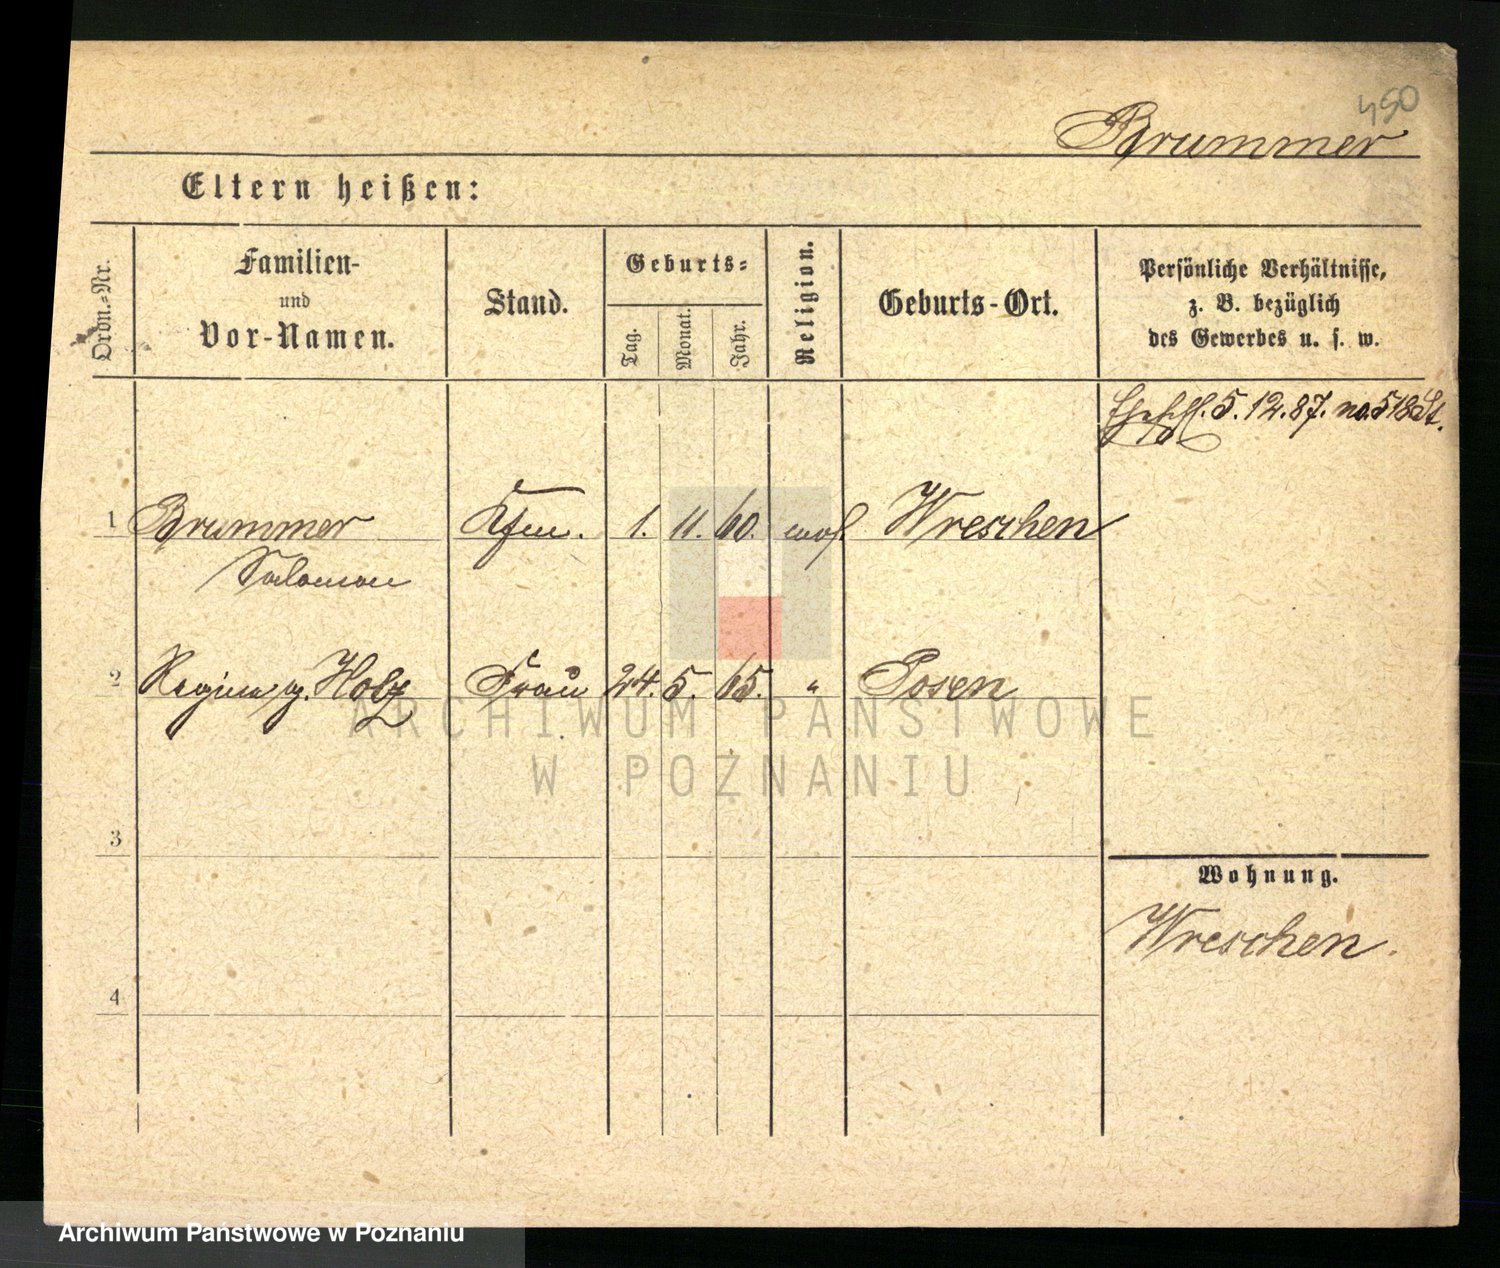 450
Brummer
Eltern heißen:
Ordn.-Nr.
Familien-
und
Vor-Namen.
Stand.
Geburts-
Tag.
Monat.
Jahr.
Religion.
Geburts-Ort.
Persönliche Verhältnisse,
z. B. bezüglich
des Gewerbes u. s. w.
Eheschl. 5.12.87. no. 518 St.
1 Brummer Kfm. 1. 11. 60. mos. Wreschen
Salomon
2 Regina g. Holz Frau 24. 5. 65. " Posen
ARCHIWUM PAŃSTWOWE
W POZNANIU
3
Wohnung.
Wreschen.
4
Archiwum Państwowe w Poznaniu